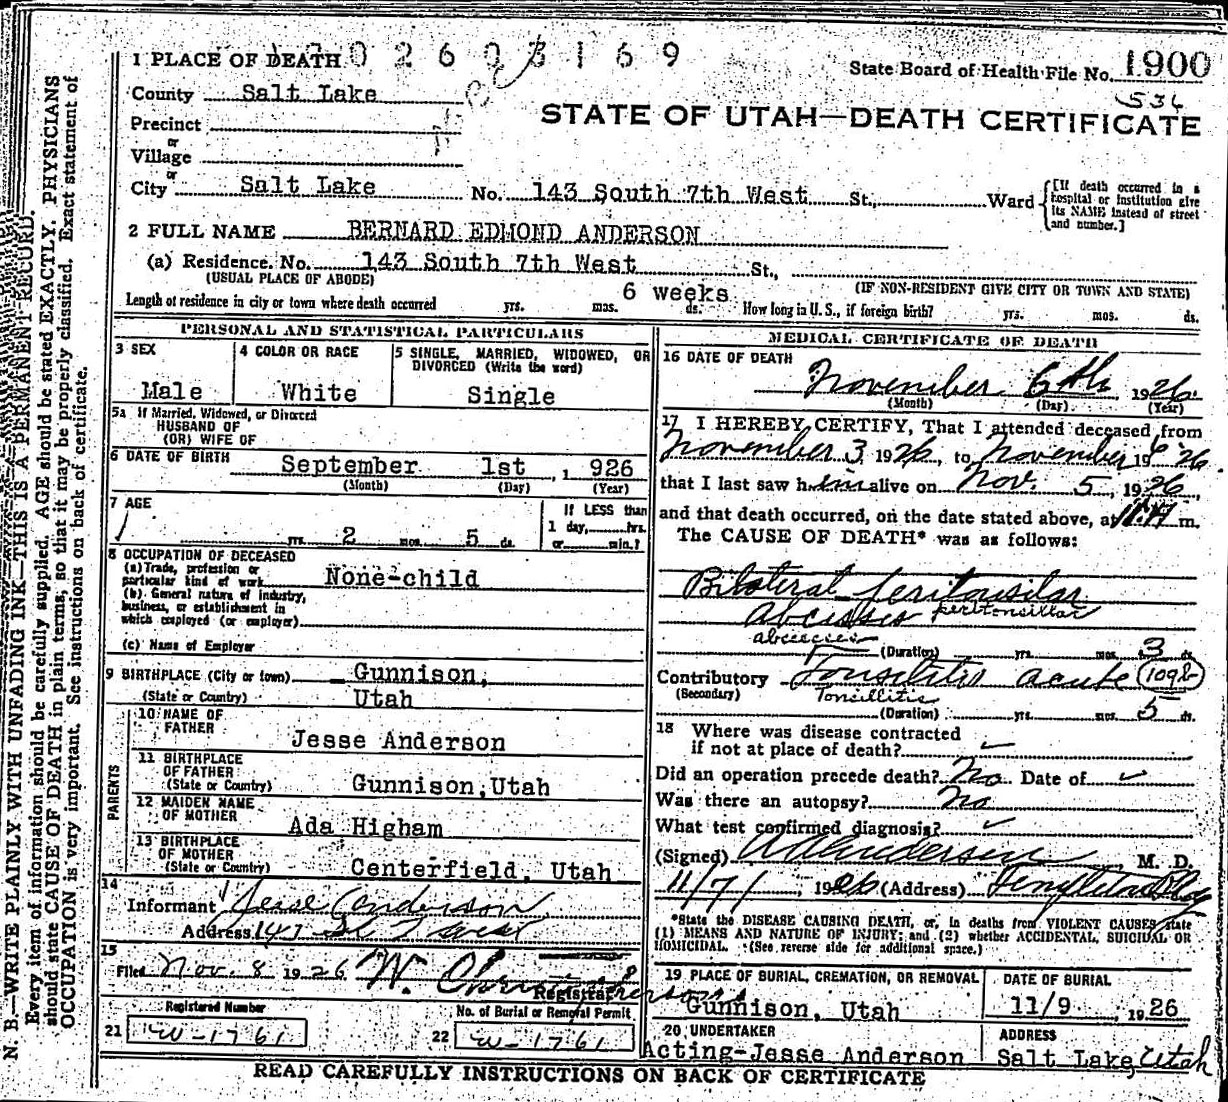 1 PLACE OF DEATH
State Board of Health File No. 1900
County Salt Lake
536
STATE OF UTAH—DEATH CERTIFICATE
Precinct
or
Village
or
City Salt Lake No. 143 South 7th West St., Ward
[If death occurred in a hospital or institution give its NAME instead of street and number.]
2 FULL NAME BERNARD EDMOND ANDERSON
(a) Residence. No. 143 South 7th West St.,
(USUAL PLACE OF ABODE) (IF NON-RESIDENT GIVE CITY OR TOWN AND STATE)
Length of residence in city or town where death occurred yrs. mos. 6 weeks ds. How long in U. S., if foreign birth? yrs. mos. ds.
PERSONAL AND STATISTICAL PARTICULARS
3 SEX Male
4 COLOR OR RACE White
5 SINGLE, MARRIED, WIDOWED, OR DIVORCED (Write the word) Single
5a If Married, Widowed, or Divorced
HUSBAND OF
(OR) WIFE OF
6 DATE OF BIRTH September 1st , 1 926
(Month) (Day) (Year)
7 AGE
yrs. 2 mos. 5 ds.
If LESS than
1 day, hrs.
or min.?
8 OCCUPATION OF DECEASED
(a) Trade, profession or
particular kind of work None-child
(b) General nature of industry,
business, or establishment in
which employed (or employer)
(c) Name of Employer
9 BIRTHPLACE (City or town) Gunnison,
(State or Country) Utah
PARENTS
10 NAME OF
FATHER Jesse Anderson
11 BIRTHPLACE
OF FATHER
(State or Country) Gunnison, Utah
12 MAIDEN NAME
OF MOTHER Ada Higham
13 BIRTHPLACE
OF MOTHER
(State or Country) Centerfield, Utah
14
Informant Jesse Anderson
Address 147 So 7 West
15
Filed Nov. 8 1926 W. Christopherson
Registrar
Registered Number
21 W-1761
No. of Burial or Removal Permit
22 W-1761
MEDICAL CERTIFICATE OF DEATH
16 DATE OF DEATH
November 6th 1926
(Month) (Day) (Year)
17 I HEREBY CERTIFY, That I attended deceased from
November 3, 1926, to November 6 1926.
that I last saw him alive on Nov. 5, 1926,
and that death occurred, on the date stated above, at m.
The CAUSE OF DEATH* was as follows:
Bilateral peritonsilar
abcesses peritonsillar
abcesses
(Duration) yrs. mos. 3 ds.
Contributory Tonsilitis acute 109b
(Secondary) Tonsillitis
(Duration) yrs. mos. 5 ds.
18 Where was disease contracted
if not at place of death? ✓
Did an operation precede death? No Date of ✓
Was there an autopsy? No
What test confirmed diagnosis? ✓
(Signed) Anderson M. D.
11/7/, 1926 (Address) Templeton Bldg
*State the DISEASE CAUSING DEATH, or, in deaths from VIOLENT CAUSES, state
(1) MEANS AND NATURE OF INJURY; and (2) whether ACCIDENTAL, SUICIDAL OR
HOMICIDAL. (See reverse side for additional space.)
19 PLACE OF BURIAL, CREMATION, OR REMOVAL
Gunnison, Utah
DATE OF BURIAL
11/9 , 1926
20 UNDERTAKER
Acting-Jesse Anderson
ADDRESS
Salt Lake, Utah
READ CAREFULLY INSTRUCTIONS ON BACK OF CERTIFICATE
N. B.—WRITE PLAINLY WITH UNFADING INK—THIS IS A PERMANENT RECORD.
Every item of information should be carefully supplied. AGE should be stated EXACTLY. PHYSICIANS
should state CAUSE OF DEATH in plain terms, so that it may be properly classified. Exact statement of
OCCUPATION is very important. See instructions on back of certificate.